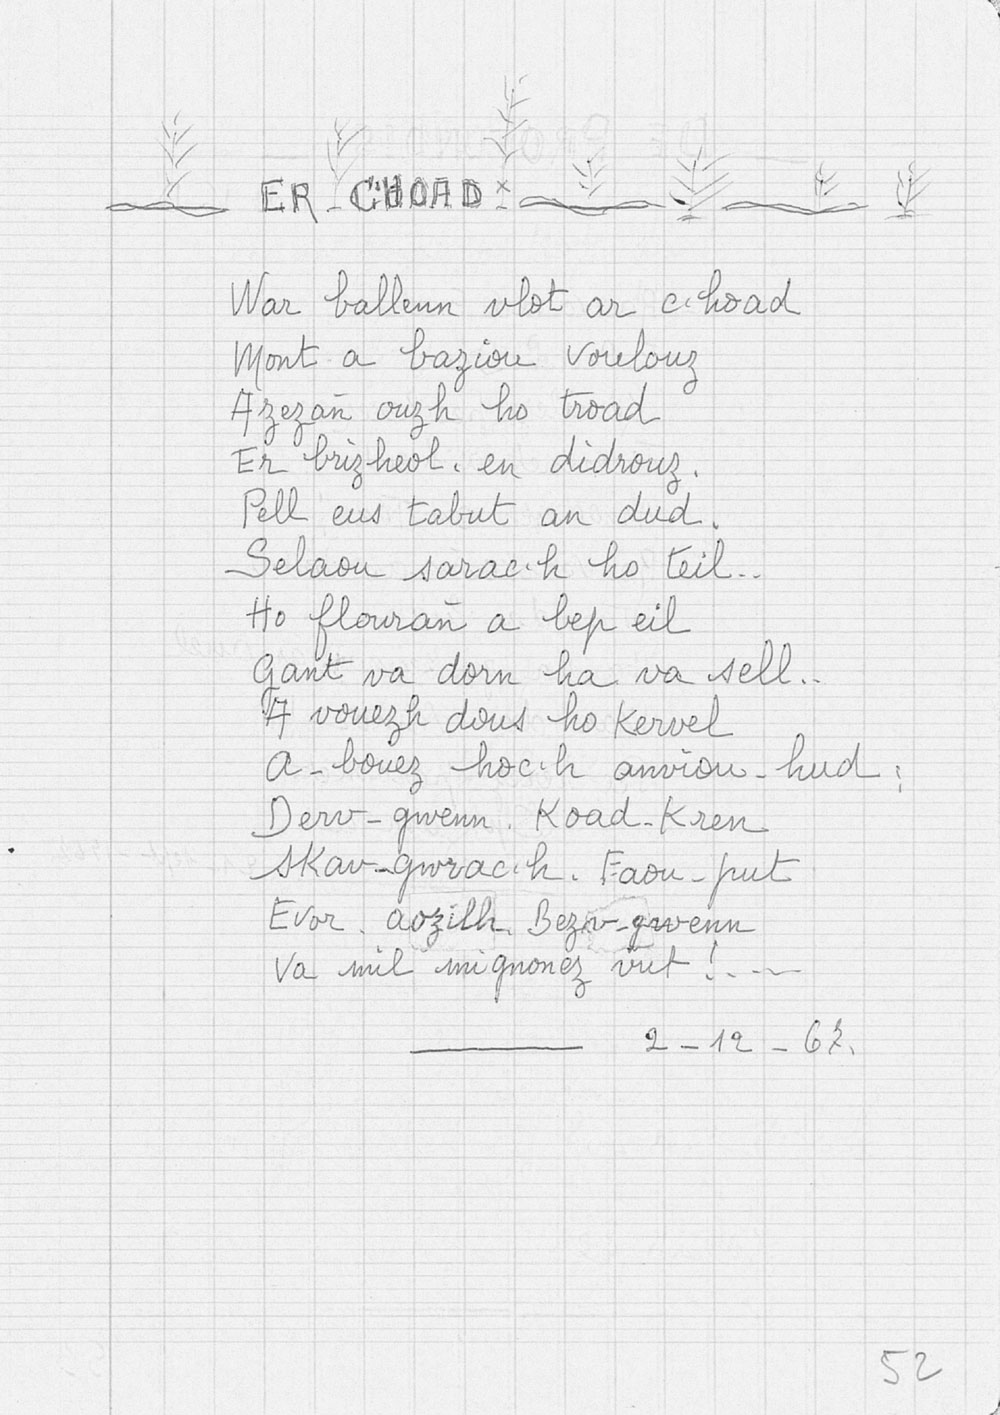 ER C'HOAD
War ballenn vlot ar c'hoad
Mont a baziou voulouz
Azezañ ouzh ho troad
Er brizheol. en didrouz.
Pell eus tabut an dud.
Selaou sarac'h ho teil..
Ho flourañ a bep eil
Gant va dorn ha va sell..
A vouezh dous ho Kervel
A-bouez hoc'h anviou-hud :
Derv-gwenn. Koad-Kren
SKav-gwrac'h. Faou-put
Evor. aozilh. Bezv-gwenn
Va mil mignonez vut !.---
2-12-62.
52